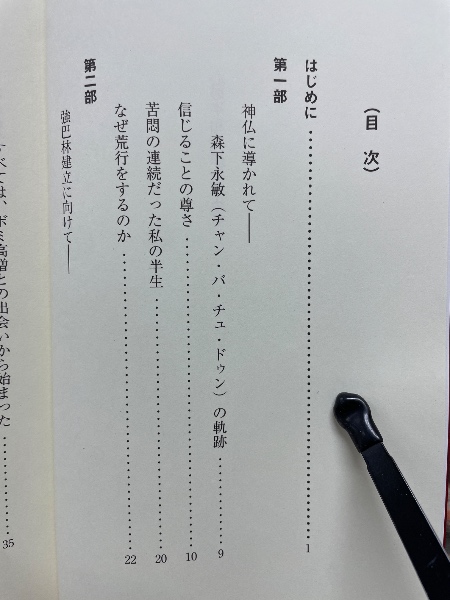 （目　次）
はじめに……………………………1
第一部
神仏に導かれて――
森下永敏（チャン・バ・チュ・ドゥン）の軌跡…………9
信じることの尊さ……………………………10
苦悶の連続だった私の半生……………………………20
なぜ荒行をするのか……………………………22
第二部
強巴林建立に向けて――
すべては、ボミ高僧との出会いから始まった…………35